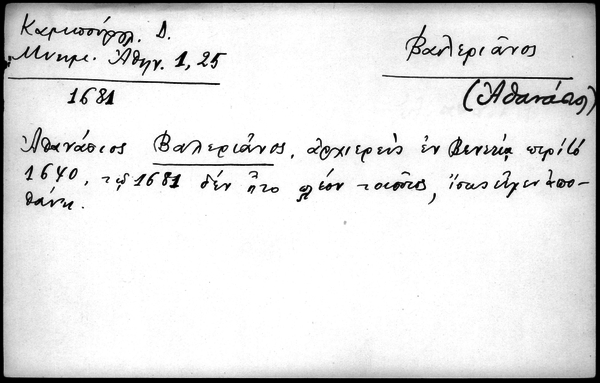 Καμπούρογλ. Δ.
Μνημ. Ἀθην. 1, 25
1681
Βαλεριᾶνος
(Ἀθανάσιος)
Ἀθανάσιος Βαλεριᾶνος, ἀρχιερεὺς ἐν Βενετίᾳ περὶ τὸ
1640, τῷ 1681 δὲν ἦτο πλέον τοιοῦτος, ἴσως εἶχεν ἀπο-
θάνει.